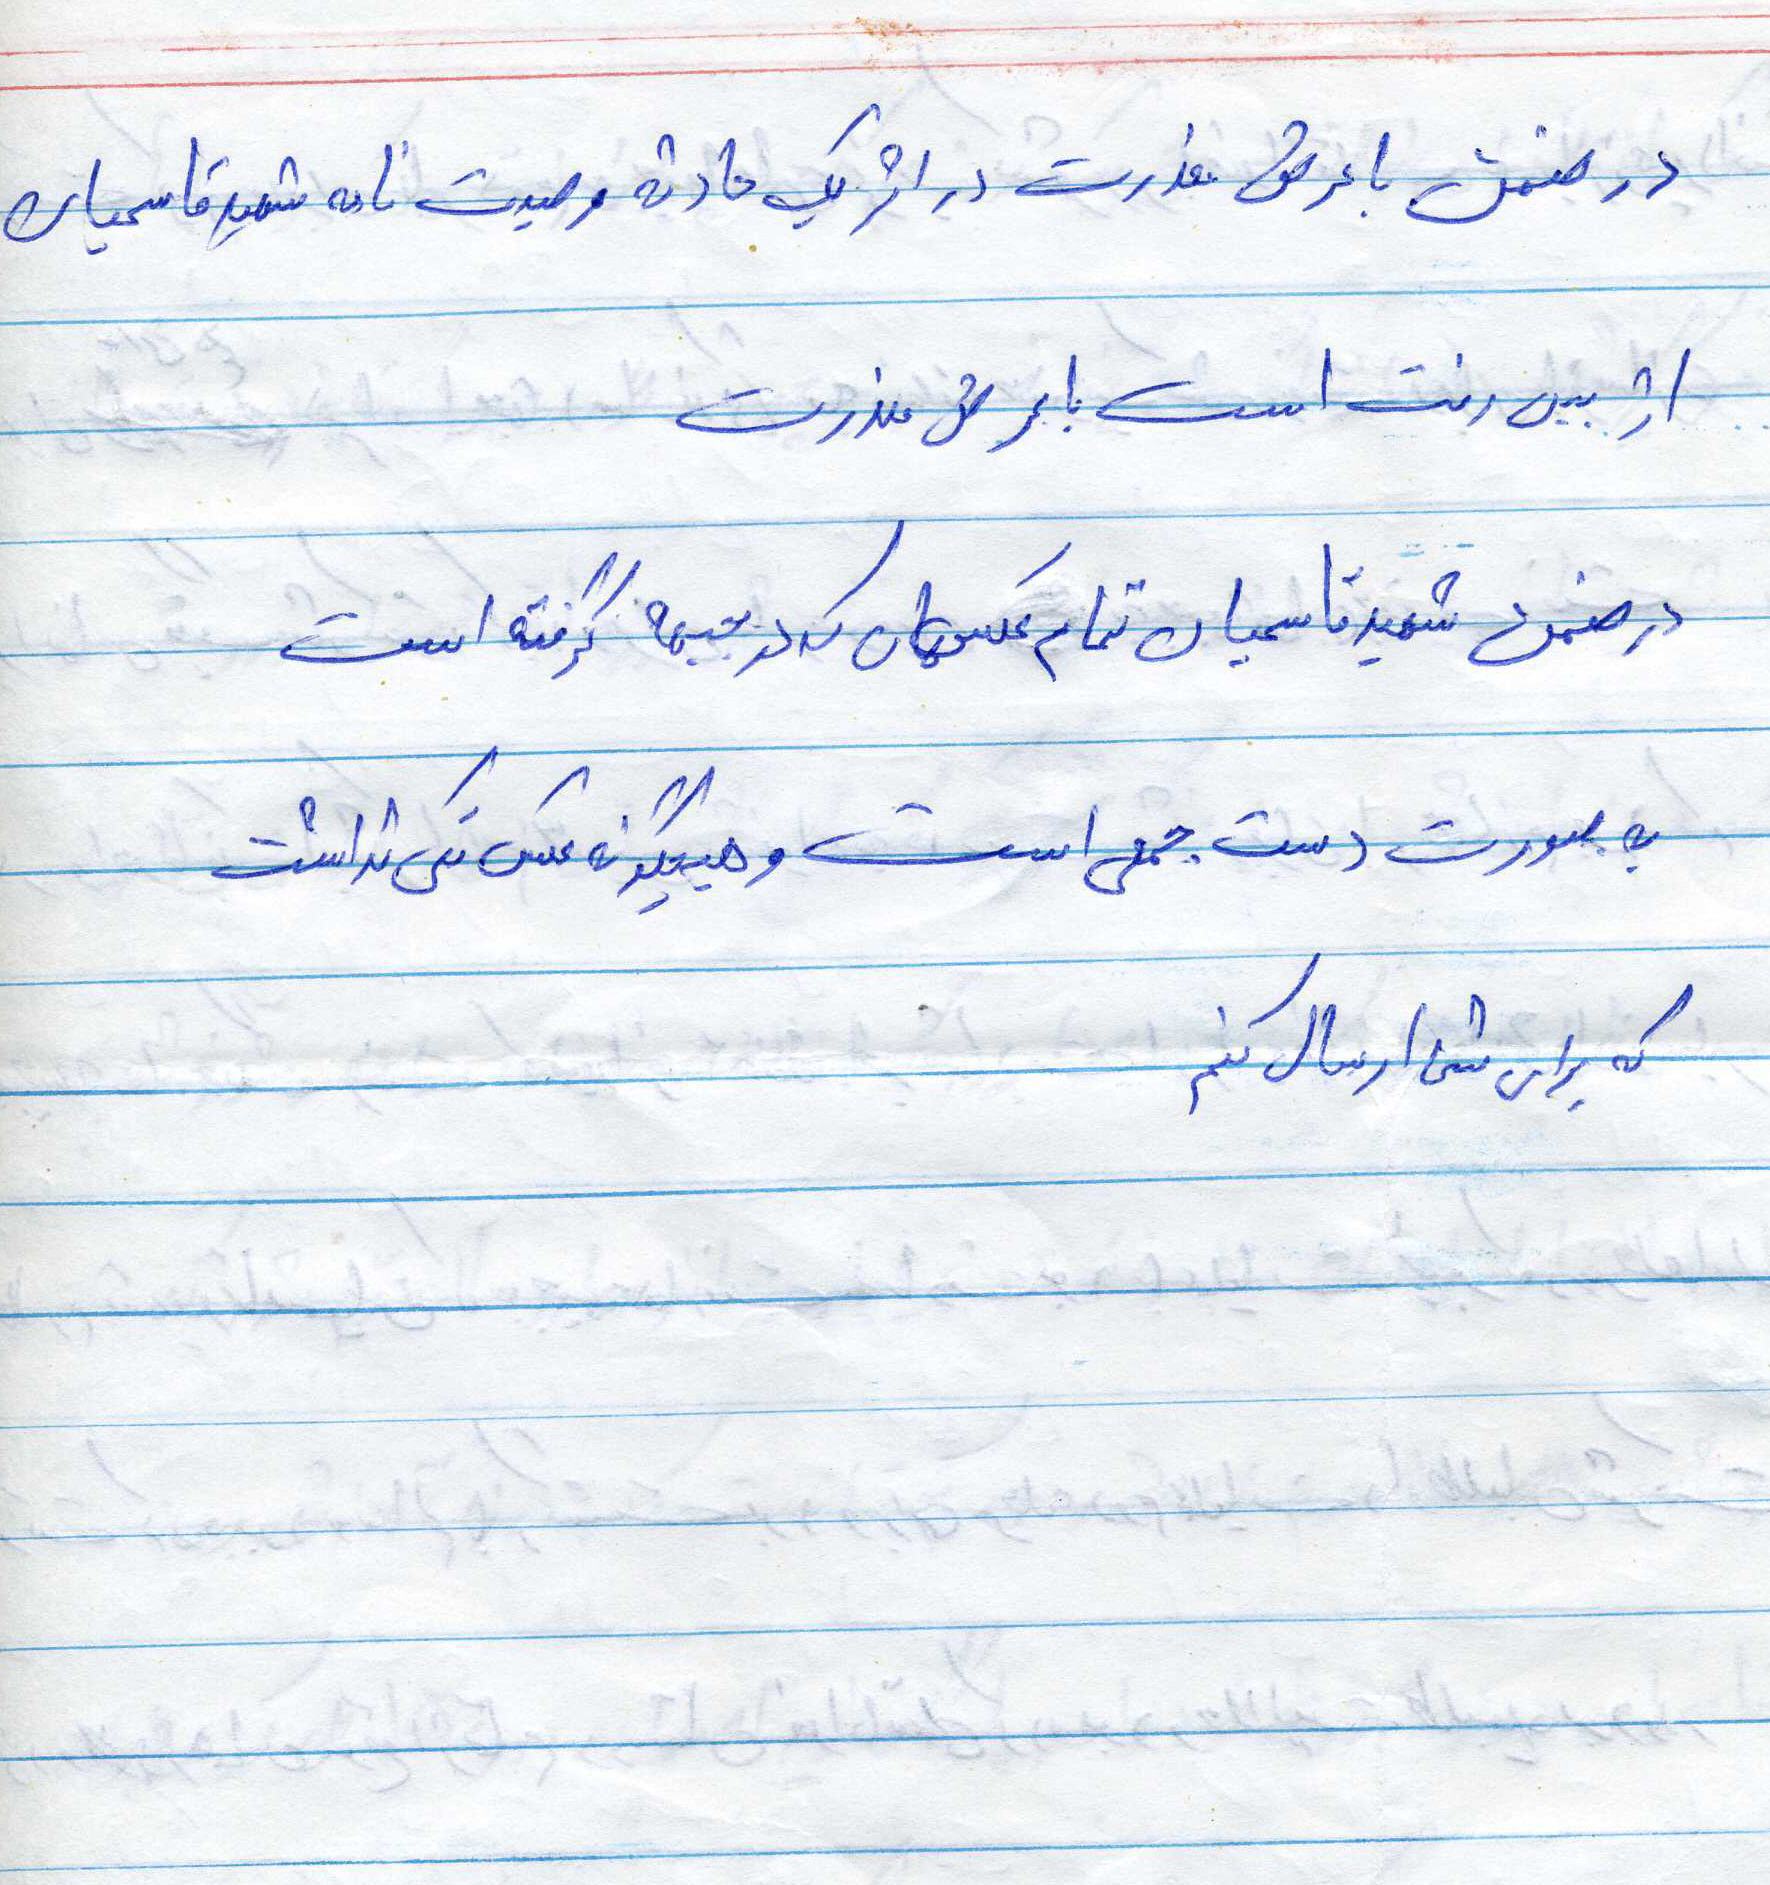 در ضمن با عرض معذرت در اثر یک حادثه وصیت نامه شهید قاسمیان
از بین رفت است با عرض معذرت
در ضمن شهید قاسمیان تمام عکسهای که در جبهه گرفته است
به صورت دست جمعی است و هیچگونه عکس تکی نداشت
که برای شما ارسال کنم